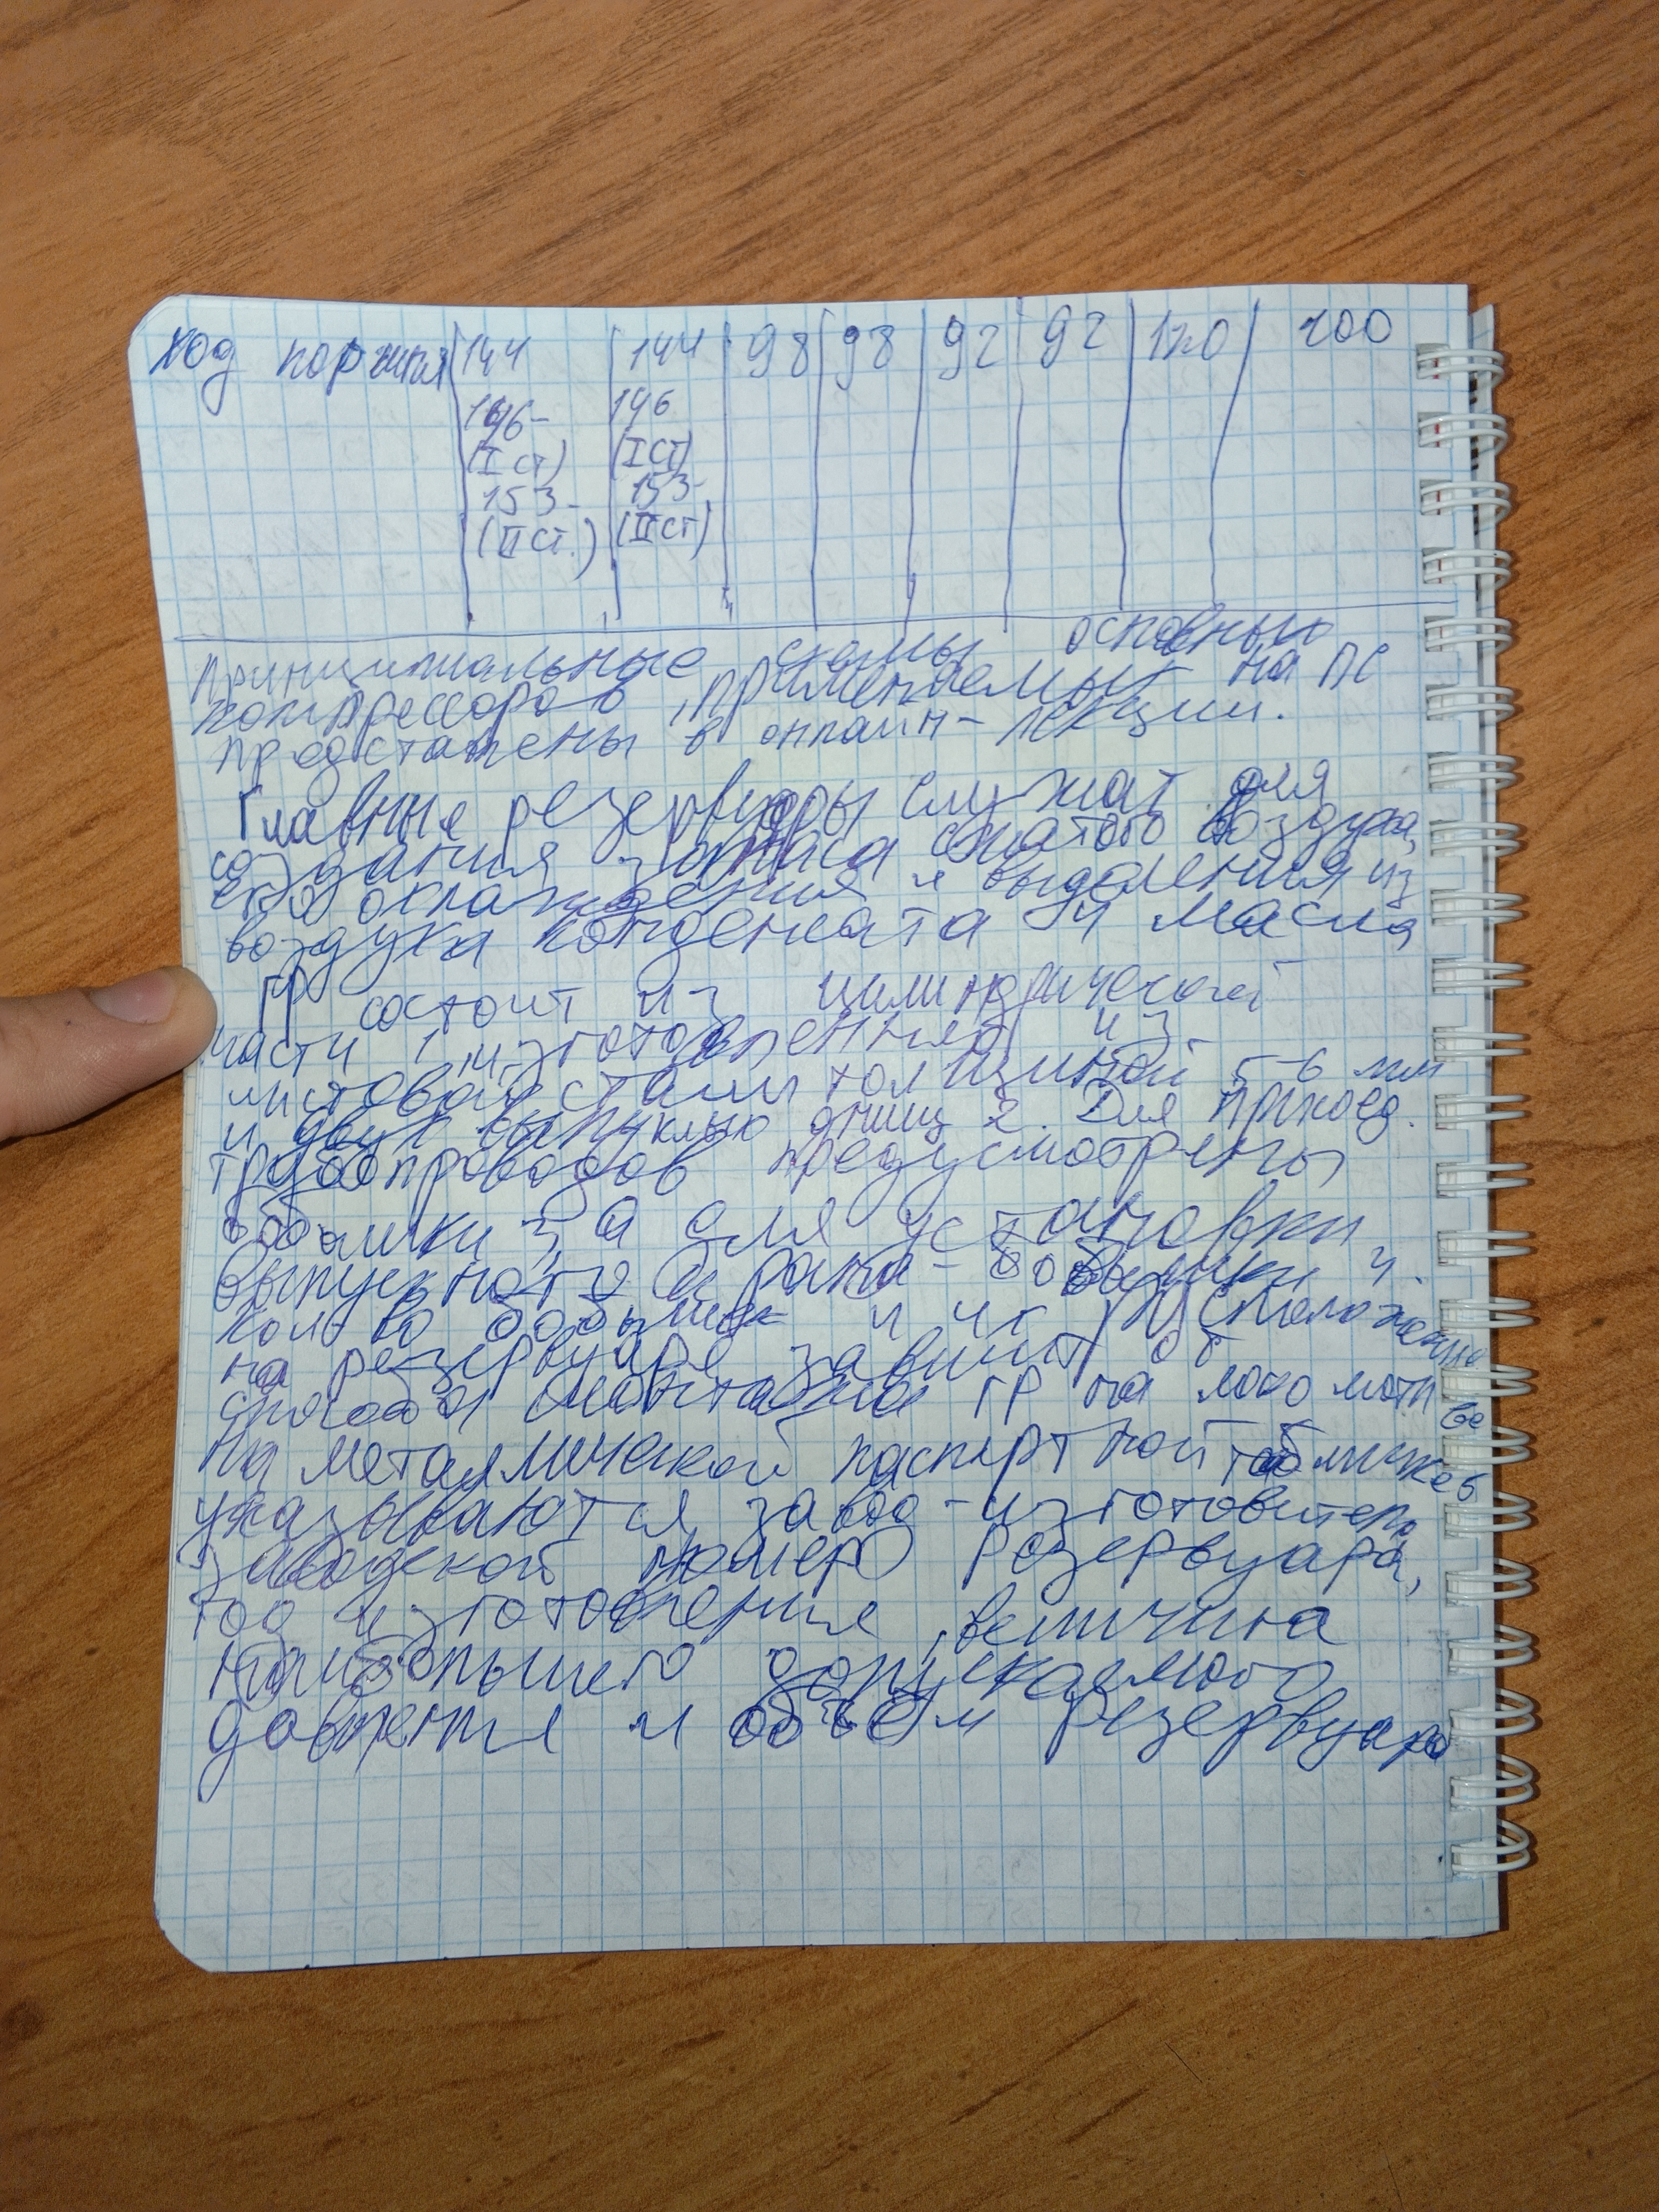 ход поршня 144 144 98 98 92 92 120 100
146- 146
(I ст) (I ст)
153- 153-
(II ст.) (II ст)
принципиальные схемы основных
компрессоров, применяемых на ПС
представлены в онлайн-лекции.
Главные резервуары служат для
создания запаса сжатого воздуха,
его охлаждения и выделения из
воздуха конденсата и масла
ГР состоит из цилиндрической
части 1, изготовленной из
листовой стали толщиной 5-6 мм
и двух выпуклых днищ 2. Для присоед.
трубопроводов предусмотрены
бобышки 3, а для установки
выпускного крана - бобышки 4.
Кол-во бобышек и их расположение
на резервуаре зависит от
способа монтажа ГР на локомотиве
На металлической паспортной табличке 6
указываются завод-изготовитель,
заводской номер резервуара,
год изготовления, величина
наибольшего допускаемого
давления и объём резервуара